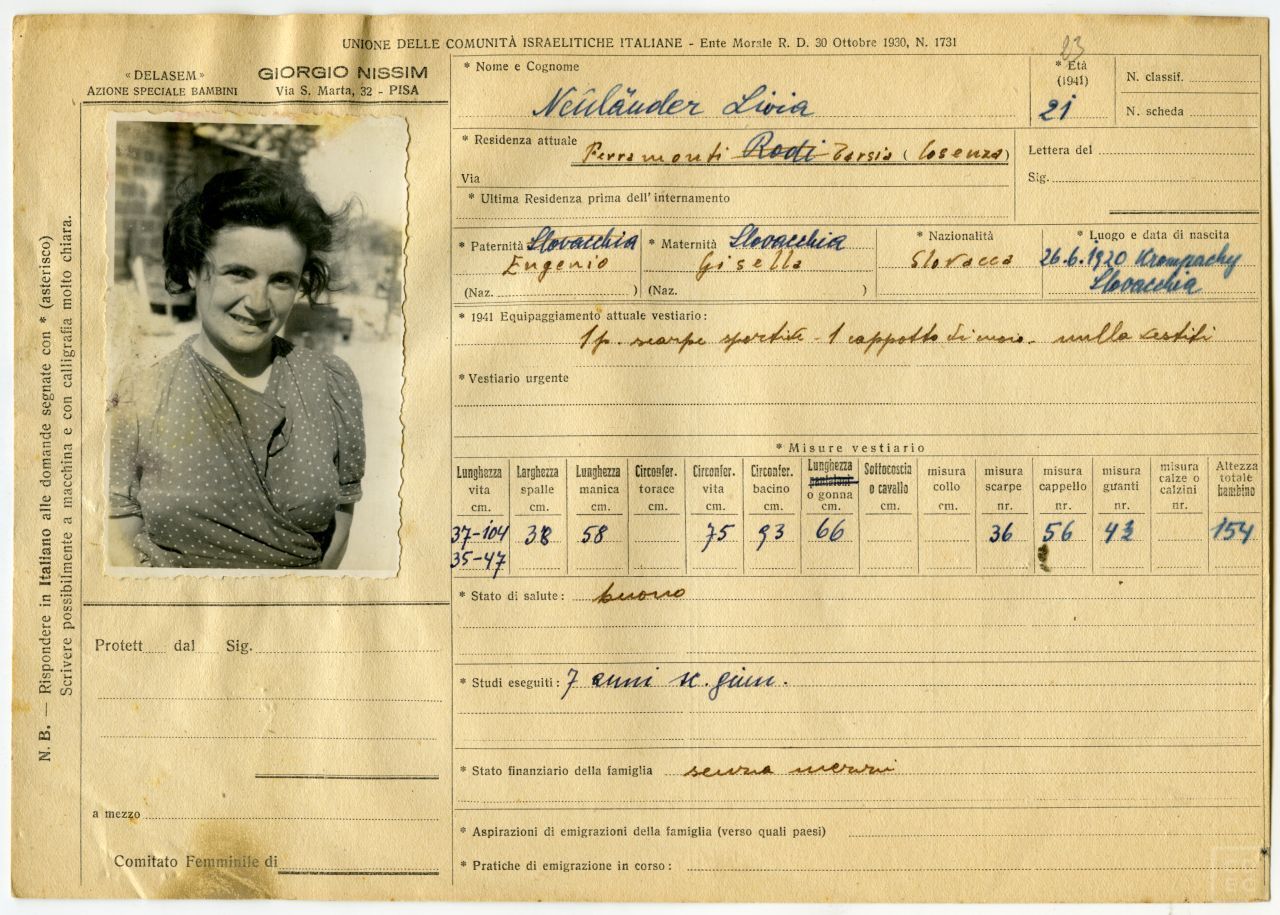 UNIONE DELLE COMUNITÀ ISRAELITICHE ITALIANE - Ente Morale R. D. 30 Ottobre 1930, N. 1731
« DELASEM »
AZIONE SPECIALE BAMBINI
GIORGIO NISSIM
Via S. Marta, 32 - PISA
N. B. — Rispondere in Italiano alle domande segnate con * (asterisco)
Scrivere possibilmente a macchina e con calligrafia molto chiara.
* Nome e Cognome
Neuländer Livia
23
* Età
(1941)
21
N. classif.
N. scheda
* Residenza attuale Ferramonti Rodi Tarsia (Cosenza)
Via
Lettera del
Sig.
* Ultima Residenza prima dell'internamento
* Paternità Slovacchia
Eugenio
(Naz. )
* Maternità Slovacchia
Gisella
(Naz. )
* Nazionalità
Slovacca
* Luogo e data di nascita
26.6.1920 Krompachy
Slovacchia
* 1941 Equipaggiamento attuale vestiario:
1 p. scarpe sportive - 1 cappotto di - nulla vestiti
* Vestiario urgente
* Misure vestiario
Lunghezza vita cm.
Larghezza spalle cm.
Lunghezza manica cm.
Circonfer. torace cm.
Circonfer. vita cm.
Circonfer. bacino cm.
Lunghezza pantaloni o gonna cm.
Sottocoscia o cavallo cm.
misura collo cm.
misura scarpe nr.
misura cappello nr.
misura guanti nr.
misura calze o calzini nr.
Altezza totale bambino
37-104 38 58 75 93 66 36 56 154
35-47
* Stato di salute: buono
* Studi eseguiti: 7 anni sc. ginn.
* Stato finanziario della famiglia senza mezzi
* Aspirazioni di emigrazioni della famiglia (verso quali paesi)
* Pratiche di emigrazione in corso:
Protett dal Sig.
a mezzo
Comitato Femminile di